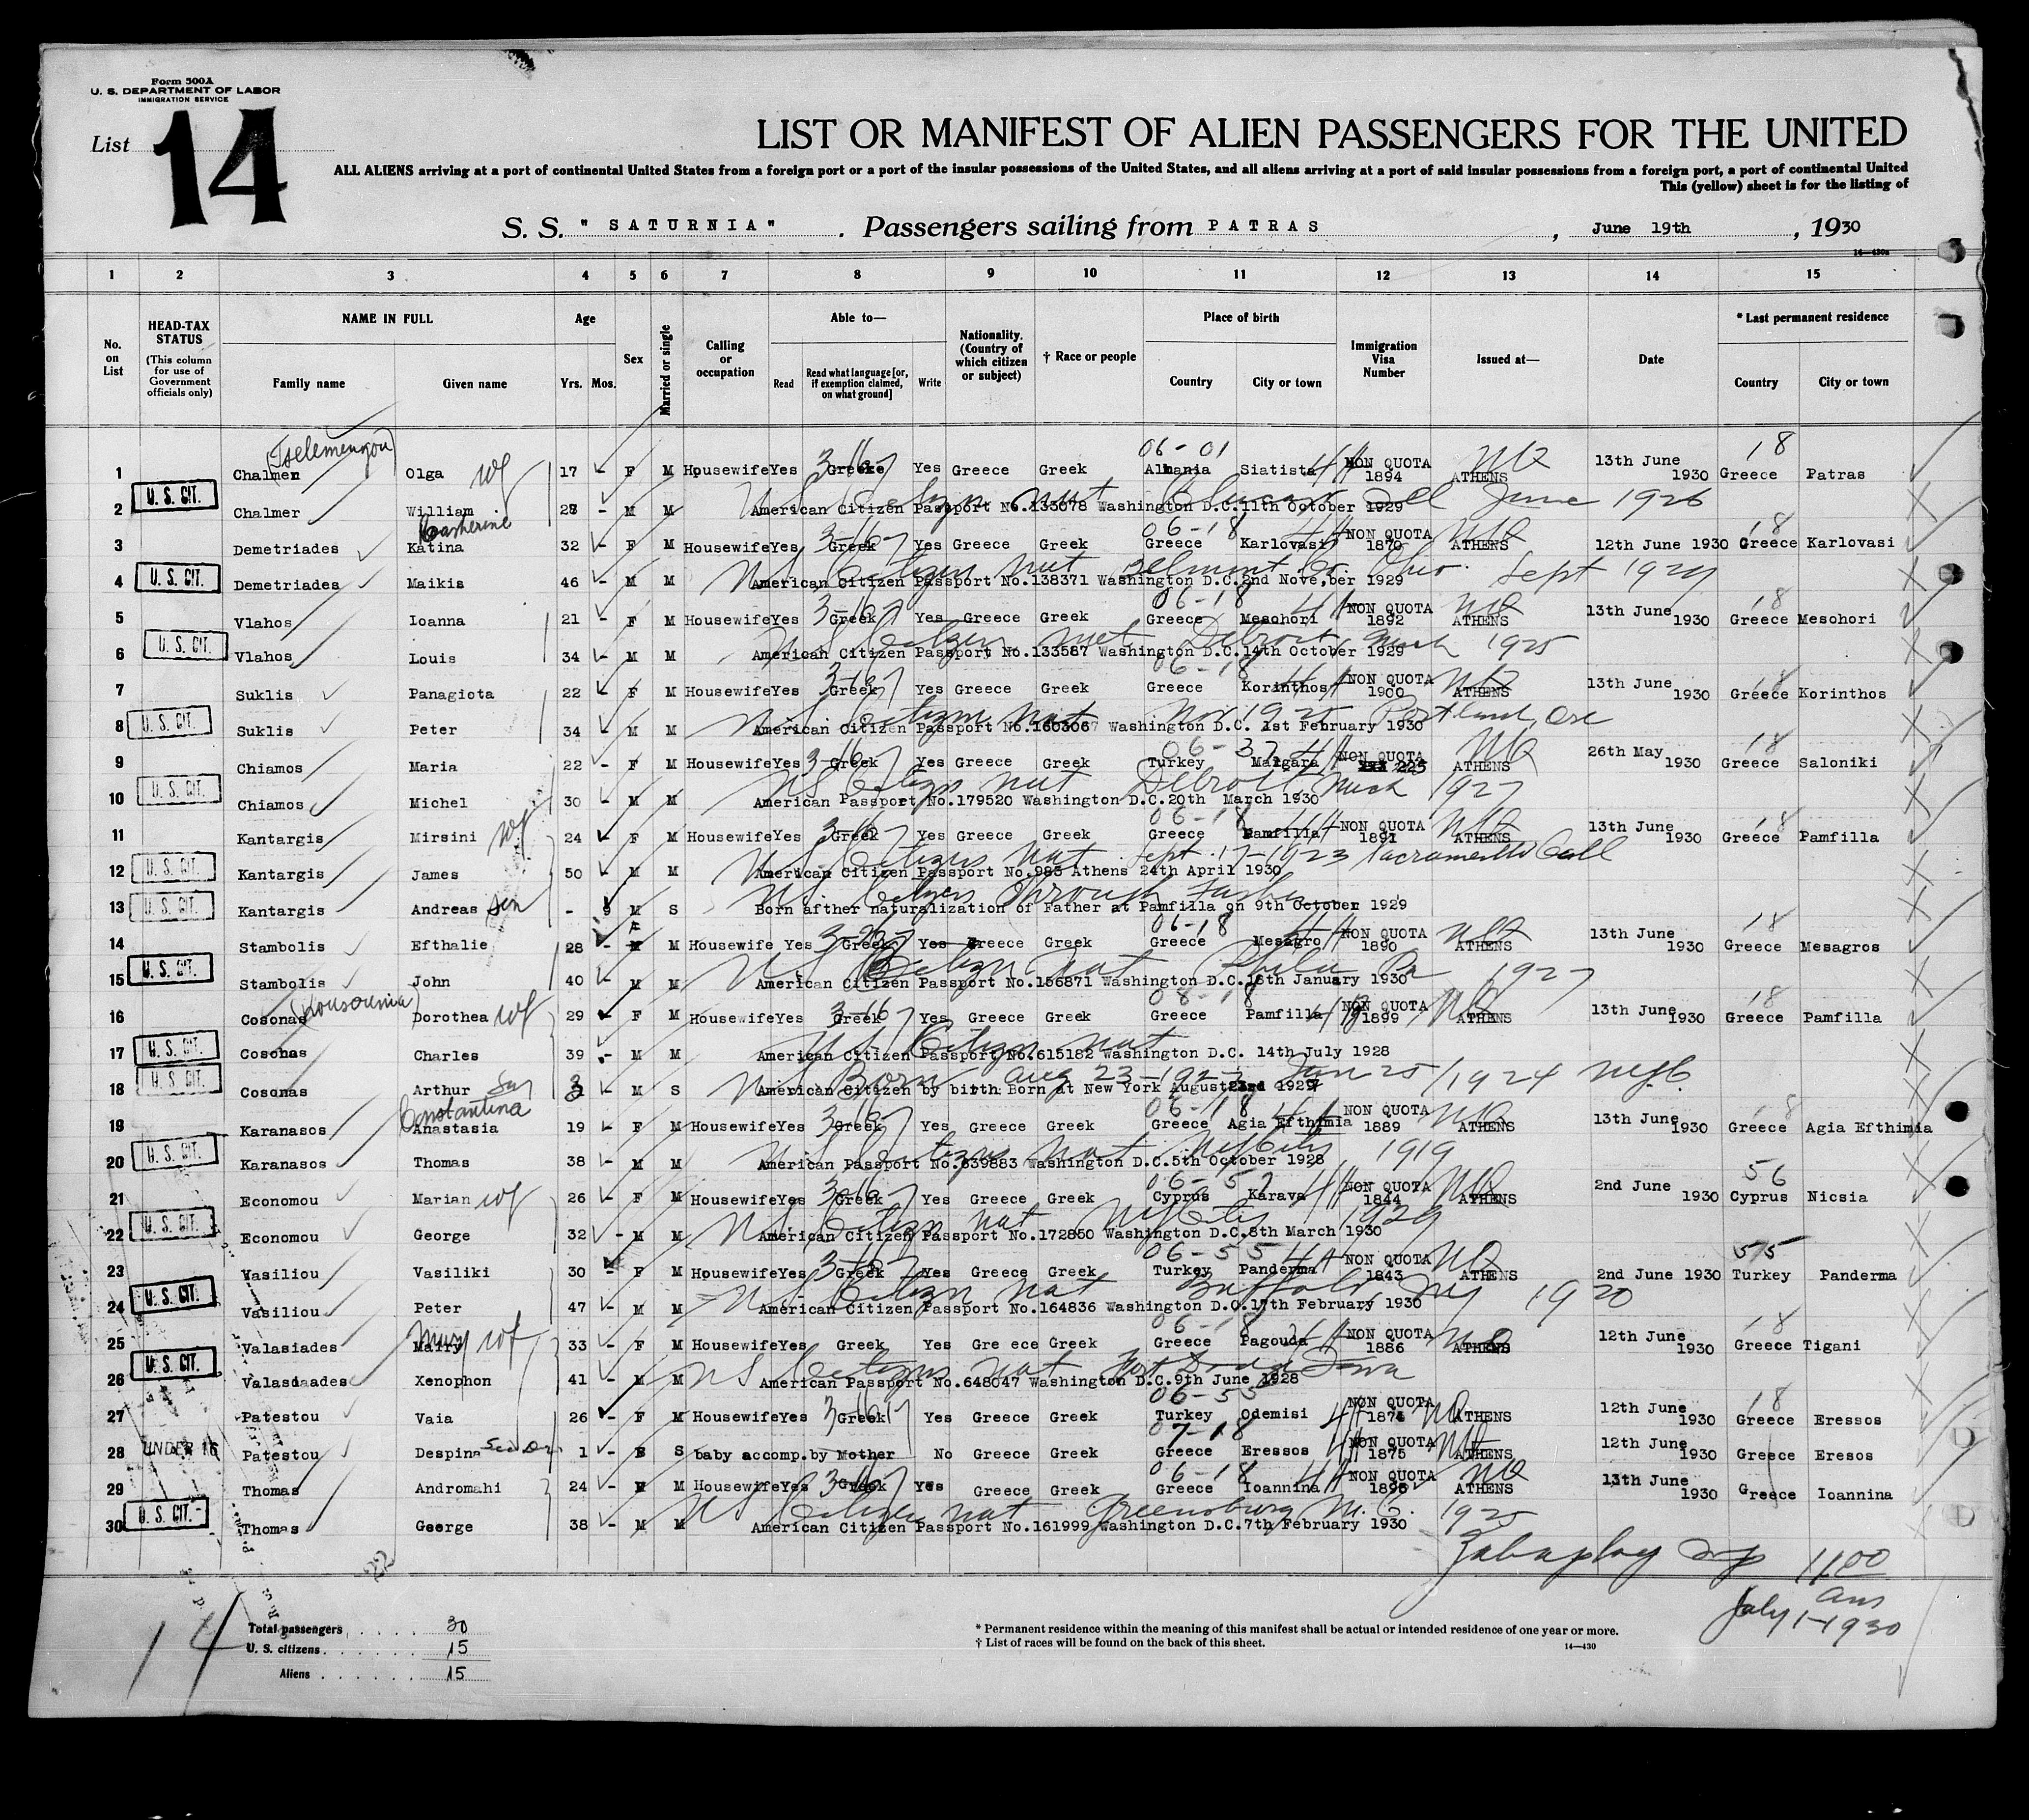 Form 500A
U. S. DEPARTMENT OF LABOR
IMMIGRATION SERVICE
List 14
LIST OR MANIFEST OF ALIEN PASSENGERS FOR THE UNITED
ALL ALIENS arriving at a port of continental United States from a foreign port or a port of the insular possessions of the United States, and all aliens arriving at a port of said insular possessions from a foreign port, a port of continental United
This (yellow) sheet is for the listing of
S. S. " SATURNIA " . Passengers sailing from PATRAS , June 19th , 1930
14—430a
1 2 3 4 5 6 7 8 9 10 11 12 13 14 15
No. on List
HEAD-TAX STATUS (This column for use of Government officials only)
NAME IN FULL
Family name Given name
Age
Yrs. Mos.
Sex
Married or single
Calling or occupation
Able to—
Read Read what language [or, if exemption claimed, on what ground] Write
Nationality. (Country of which citizen or subject)
† Race or people
Place of birth
Country City or town
Immigration Visa Number
Issued at—
Date
* Last permanent residence
Country City or town
(Tselemengou) 06-01 18
1 Chalmer Olga wf 17 - F M Housewife Yes Greeke Yes Greece Greek Albania Siatista NON QUOTA 1894 ATHENS 13th June 1930 Greece Patras
U. S. CIT. US Citizen nat Del June 1926
2 Chalmer William 28 - M M American Citizen Passport No.133078 Washington D.C.11th October 1929
Catherine 06-18 18
3 Demetriades Katina 32 - F M Housewife Yes Greek Yes Greece Greek Greece Karlovasi NON QUOTA 1870 ATHENS 12th June 1930 Greece Karlovasi
U. S. CIT. US Citizen nat Belmont Co. Ohio. Sept 1929
4 Demetriades Maikis 46 - M M American Citizen Passport No.138371 Washington D.C.2nd Nove,ber 1929
06-18 18
5 Vlahos Ioanna 21 - F M Housewife Yes Greek Yes Greece Greek Greece Mesohori NON QUOTA 1892 ATHENS 13th June 1930 Greece Mesohori
U. S. CIT. US Citizen nat Detroit, Mich 1925
6 Vlahos Louis 34 - M M American Citizen Passport No.133587 Washington D.C.14th October 1929
06-18 18
7 Suklis Panagiota 22 - F M Housewife Yes Greek Yes Greece Greek Greece Korinthos NON QUOTA 1900 ATHENS 13th June 1930 Greece Korinthos
U. S. CIT. US Citizen nat Nov 1925 Portland, Ore
8 Suklis Peter 34 - M M American Citizen Passport No.160306 Washington D.C. 1st February 1930
06-37 18
9 Chiamos Maria 22 - F M Housewife Yes Greek Yes Greece Greek Turkey Malgara NON QUOTA 225 ATHENS 26th May 1930 Greece Saloniki
U. S. CIT. US Citizn nat Detroit, Mich 1927
10 Chiamos Michel 30 - M M American Passport No.179520 Washington D.C.20th March 1930
06-18 18
11 Kantargis Mirsini wf 24 - F M Housewife Yes Greek Yes Greece Greek Greece Pamfilla NON QUOTA 1891 ATHENS 13th June 1930 Greece Pamfilla
U. S. CIT. US Citizen nat Sept. 17-1923 Sacramento Call
12 Kantargis James 50 - M M American Citizen Passport No.985 Athens 24th April 1930
U. S. CIT. US Citizen through father
13 Kantargis Andreas son - 9 M S Born afther naturalization of Father at Pamfilla on 9th October 1929
06-18 18
14 Stambolis Efthalie 28 - F M Housewife Yes Greek Yes Greece Greek Greece Mesagro NON QUOTA 1890 ATHENS 13th June 1930 Greece Mesagros
U. S. CIT. US Citizn nat Phila Pa 1927
15 Stambolis John 40 - M M American Citizen Passport No.156871 Washington D.C.16th January 1930
(Kousounia) 08-18 18
16 Cosonas Dorothea wf 29 - F M Housewife Yes Greek Yes Greece Greek Greece Pamfilla NON QUOTA 1899 ATHENS 13th June 1930 Greece Pamfilla
U. S. CIT. US Citizn nat
17 Cosonas Charles 39 - M M American Citizen Passport No.615182 Washington D.C. 14th July 1928
U. S. CIT. US Born Aug 23-1927 Jan 25/1924 NYC
18 Cosonas Arthur Son - M S American Citizen by birth Born at New York August 23rd 1927
Constantina 06-18 18
19 Karanasos Anastasia 19 - F M Housewife Yes Greek Yes Greece Greek Greece Agia Efthimia NON QUOTA 1889 ATHENS 13th June 1930 Greece Agia Efthimia
U. S. CIT. US Citizen nat NYCity 1919
20 Karanasos Thomas 38 - M M American Passport No.639883 Washington D.C.5th October 1928
06-57 56
21 Economou Marian wf 26 - F M Housewife Yes Greek Yes Greece Greek Cyprus Karava NON QUOTA 1844 ATHENS 2nd June 1930 Cyprus Nicsia
U. S. CIT. US Citizn nat NYCity 1929
22 Economou George 32 - M M American Citizen Passport No.172850 Washington D.C.8th March 1930
06-55 55
23 Vasiliou Vasiliki 30 - F M Housewife Yes Greek Yes Greece Greek Turkey Panderma NON QUOTA 1843 ATHENS 2nd June 1930 Turkey Panderma
U. S. CIT. US Citizn nat Buffalo, NY 1920
24 Vasiliou Peter 47 - M M American Citizen Passport No.164836 Washington D.C.17th February 1930
06-18 18
25 Valasiades Mairy Mary wf 33 - F M Housewife Yes Greek Yes Gre ece Greek Greece Pagouda NON QUOTA 1886 ATHENS 12th June 1930 Greece Tigani
U. S. CIT. US Citizen nat Fort Dodge Iowa
26 Valasiaades Xenophon 41 - M M American Passport No.648047 Washington D.C.9th June 1928
06-55 18
27 Patestou Vaia 26 - F M Housewife Yes Greek Yes Greece Greek Turkey Odemisi NON QUOTA 1874 ATHENS 12th June 1930 Greece Eressos
UNDER 16 07-18
28 Patestou Despina 1 - F S baby accomp.by Mother No Greece Greek Greece Eressos NON QUOTA 1875 ATHENS 12th June 1930 Greece Eresos
06-18
29 Thomas Andromahi 24 - F M Housewife Yes Greek Yes Greece Greek Greece Ioannina NON QUOTA 1896 ATHENS 13th June 1930 Greece Ioannina
U. S. CIT. US Citizen nat Greensburg N. C. 1925
30 Thomas George 38 - M M American Citizen Passport No.161999 Washington D.C.7th February 1930
11.00 am
July 1-1930
14
Total passengers . . . . . 30
U. S. citizens . . . . . . . 15
Aliens . . . . . . . 15
* Permanent residence within the meaning of this manifest shall be actual or intended residence of one year or more.
† List of races will be found on the back of this sheet.
14—430